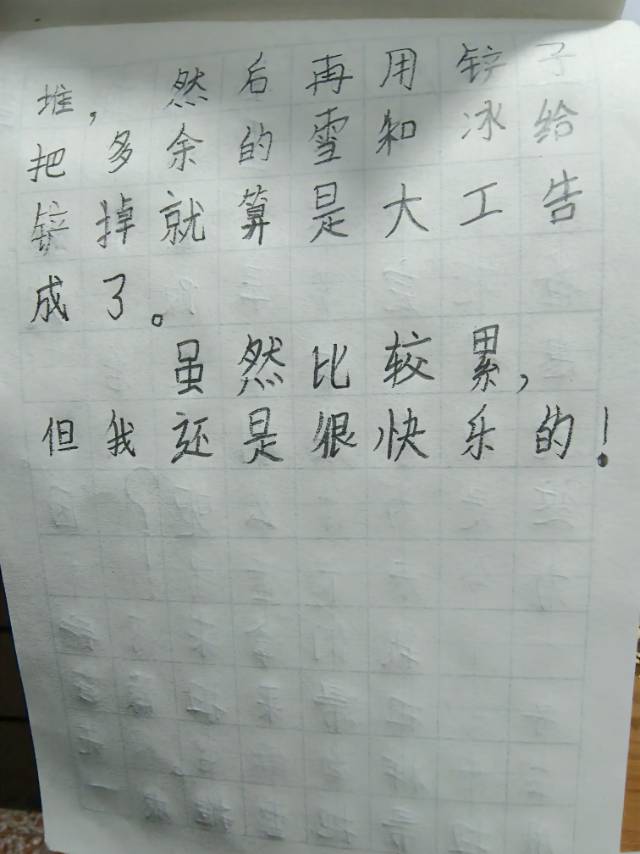 堆，然后再用锌子
把多余的雪和冰给
锌掉就算是大工告
成了。
虽然比较累，
但我还是很快乐的！